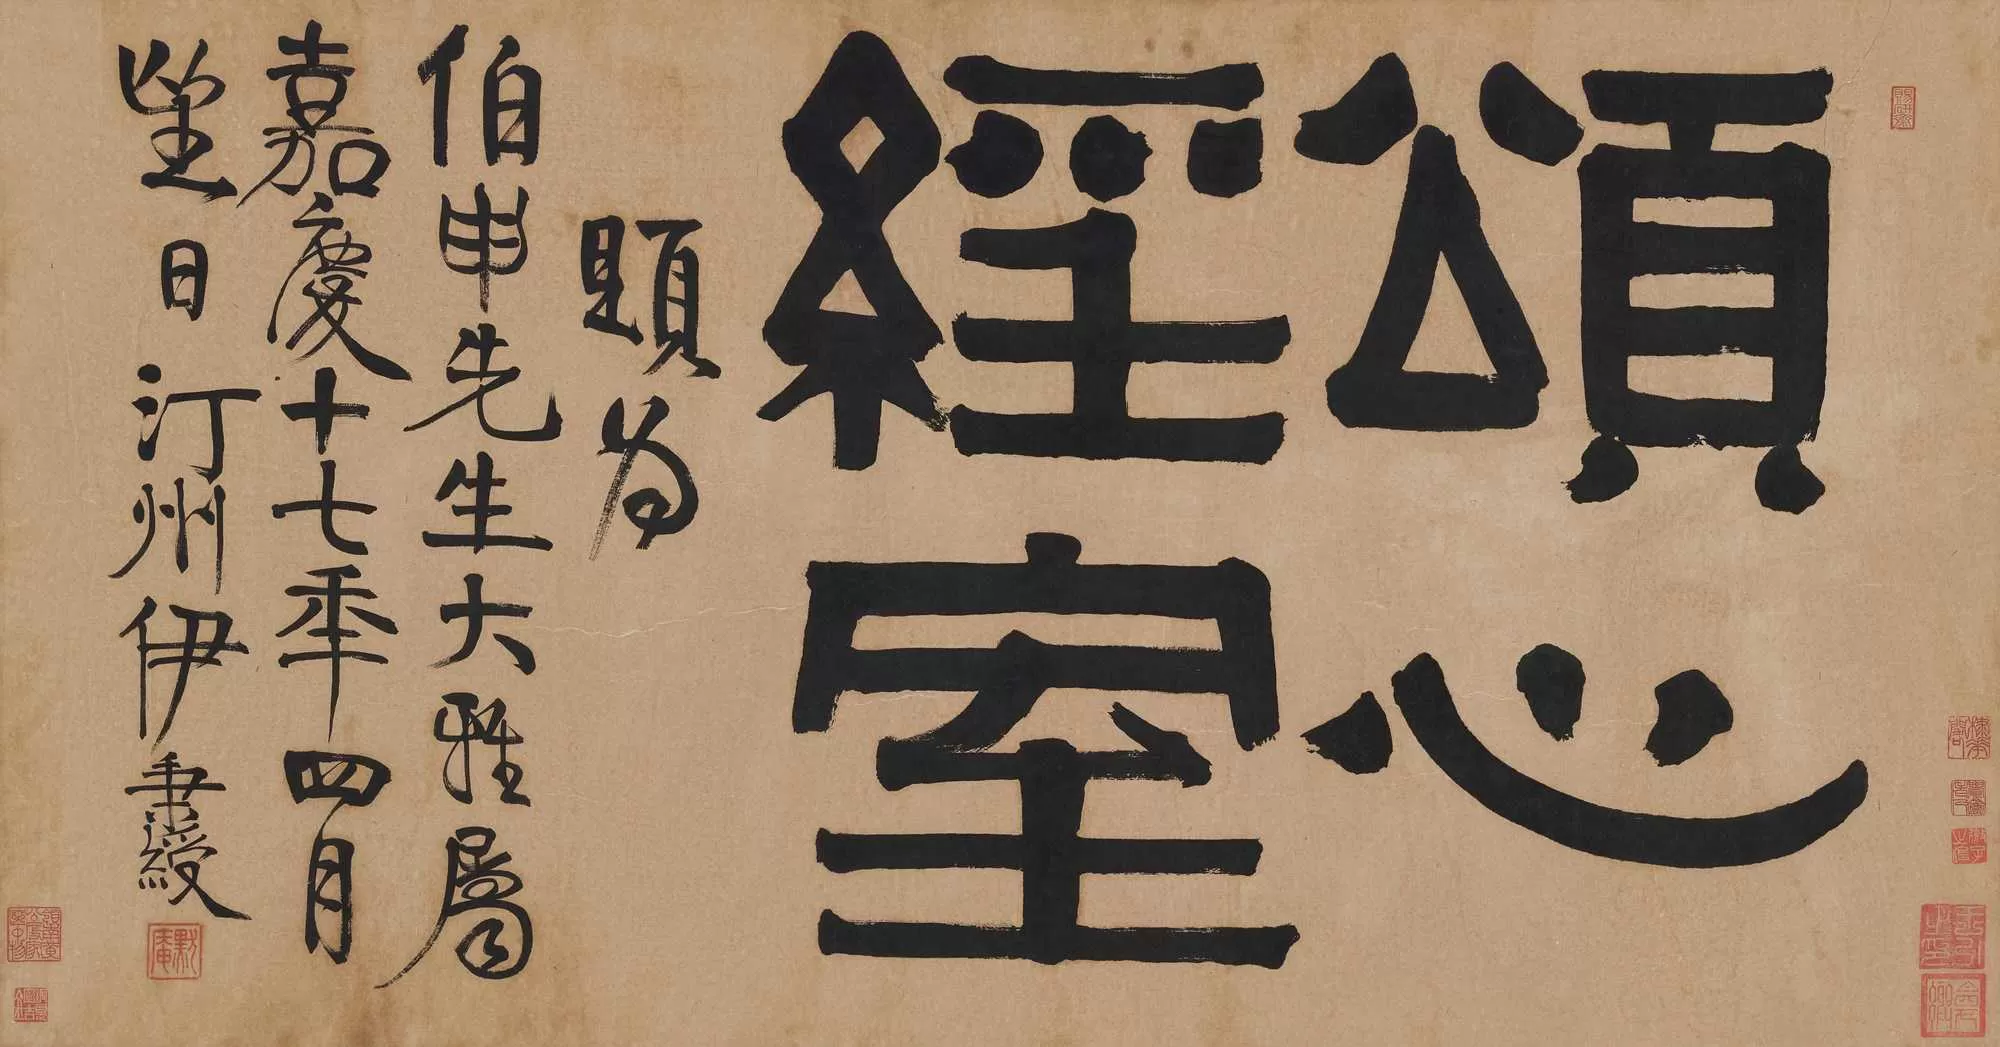 頌心
經室
題為
伯申先生大雅屬
嘉慶十七秊四月
望日汀州伊秉綬
默庵